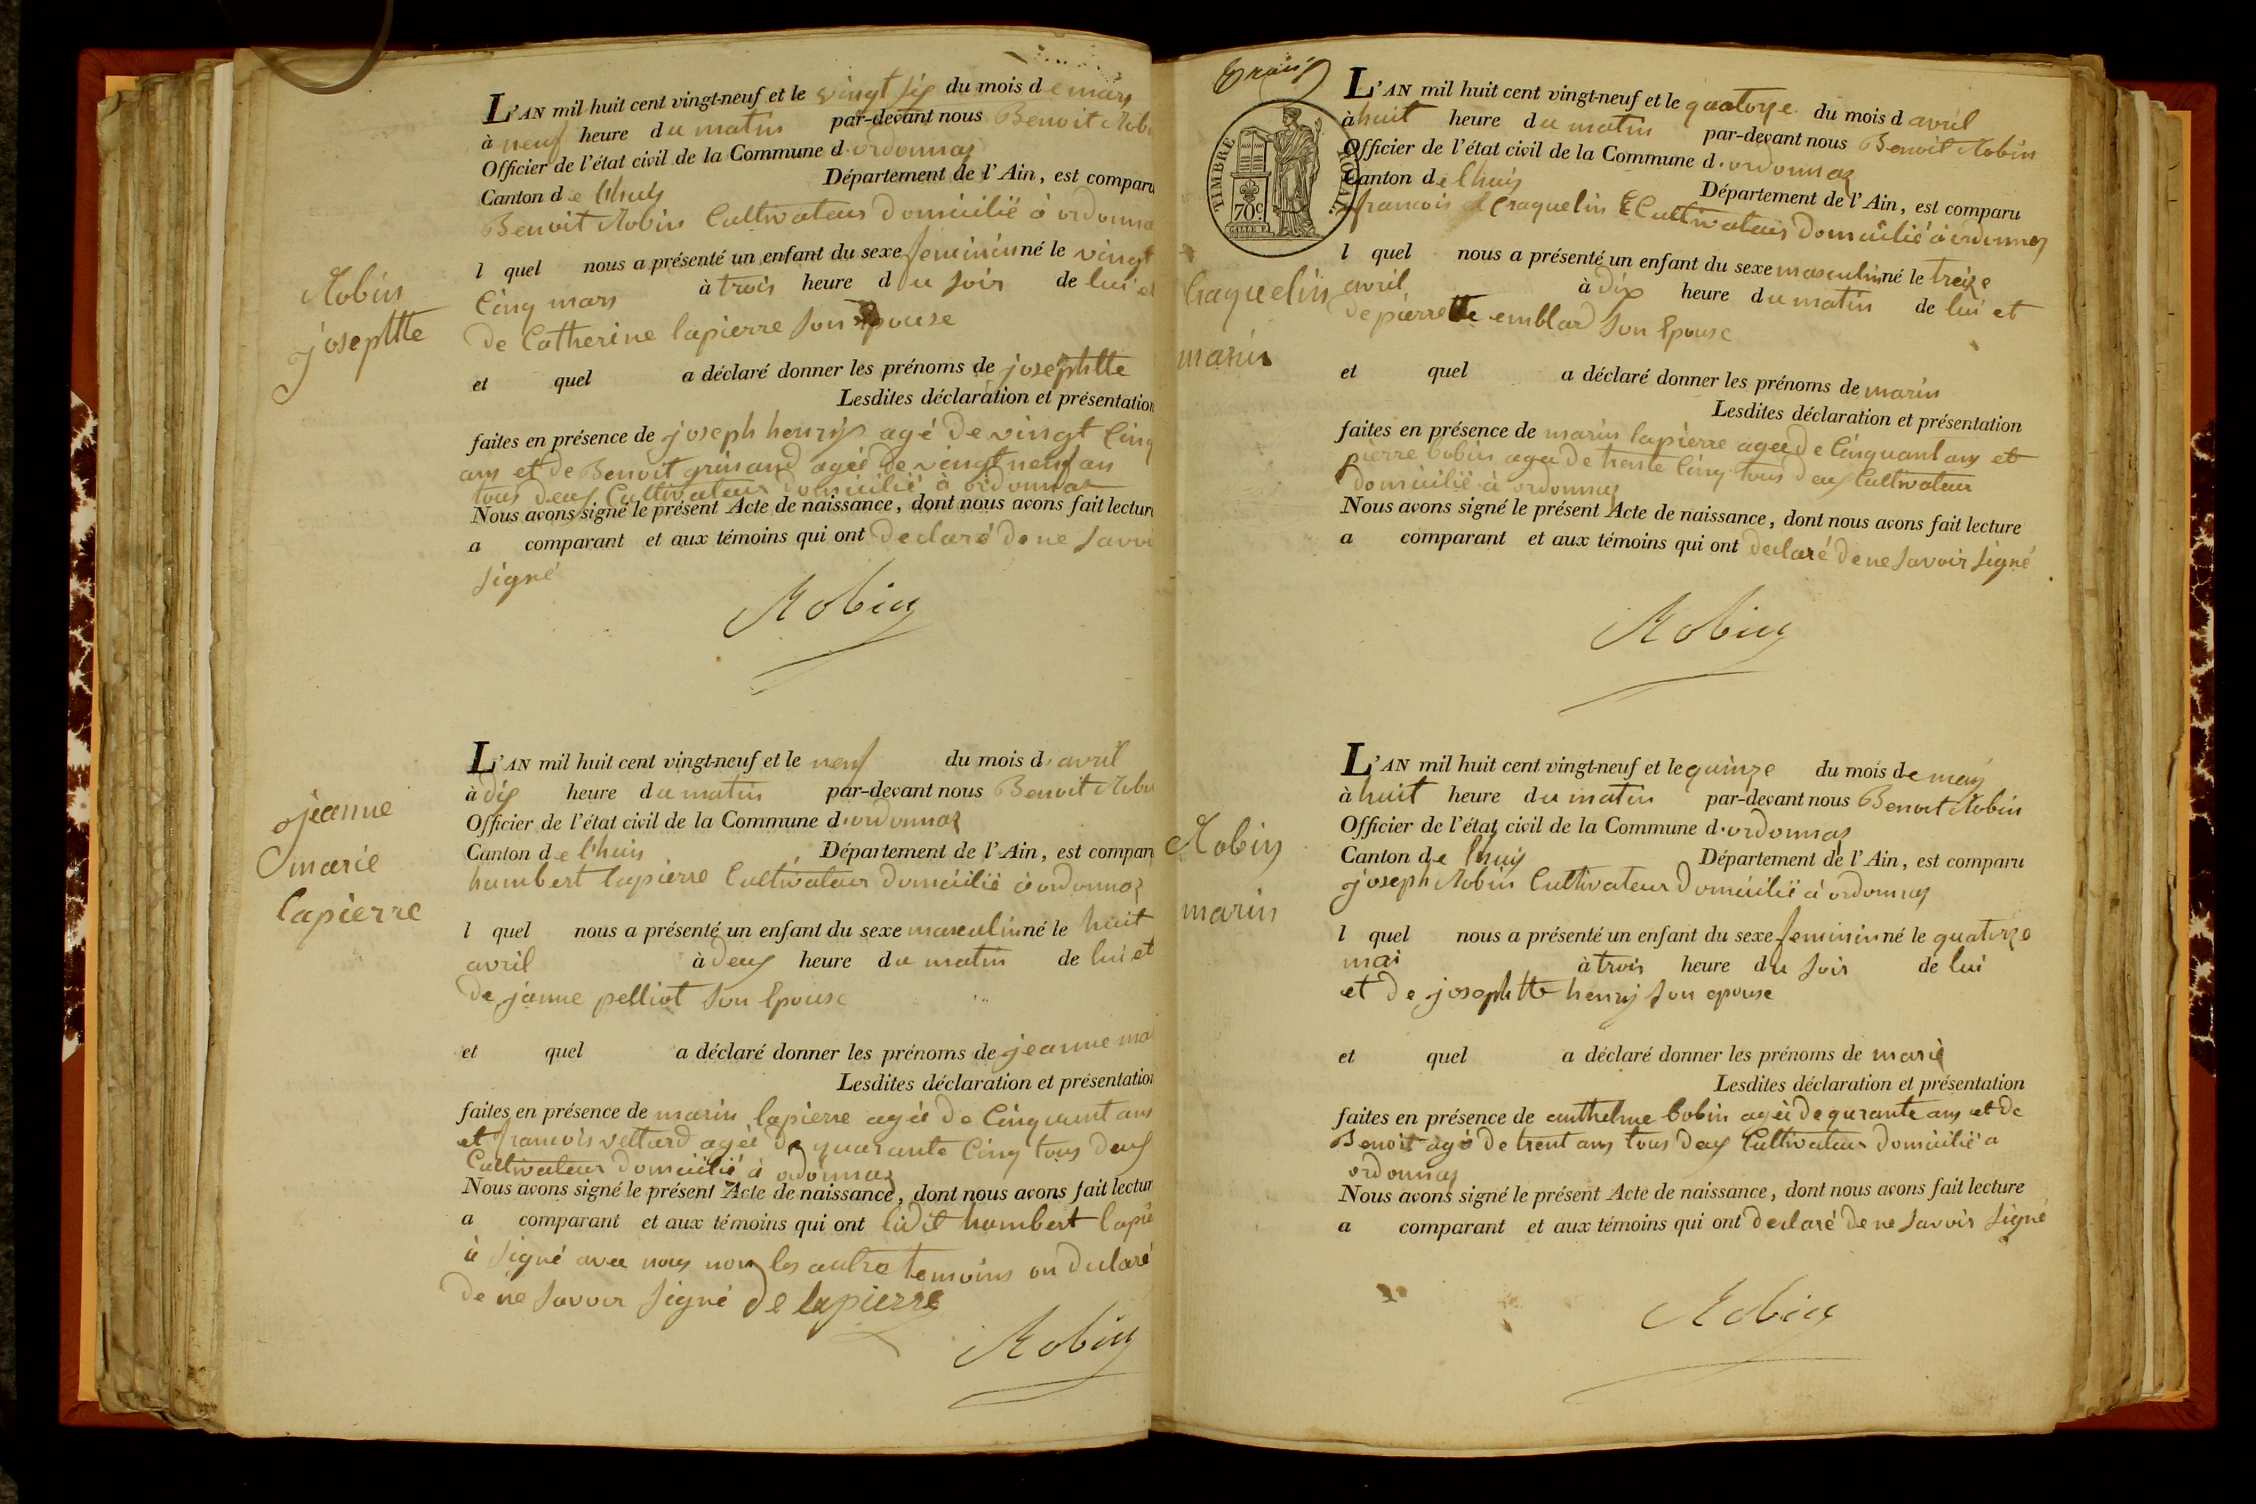 Robin
josephtte
L'AN mil huit cent vingt-neuf et le vingt six du mois de mars
à neuf heure du matin par-devant nous Benoit Robi
Officier de l'état civil de la Commune d'ordonnaz
Canton de lhuis Département de l'Ain, est comparu
Benoit Robin Cultivateur domicilié à ordonna
l quel nous a présenté un enfant du sexe feminin né le vingt
Cinq mars à trois heure du soir de lui et
de Catherine lapierre son epouse
et quel a déclaré donner les prénoms de josephtte
Lesdites déclaration et présentation
faites en présence de joseph henrys agé de vingt Cinq
ans et de Benoit grinand agée de vingt neuf an
tous deux Cultivateur domicilié à ordonnaz
Nous avons signé le présent Acte de naissance, dont nous avons fait lectur
a comparant et aux témoins qui ont declaré de ne savoi
signé
Robin
jeanne
marie
lapierre
L'AN mil huit cent vingt-neuf et le neuf du mois d'avril
à dix heure du matin par-devant nous Benoit Robi
Officier de l'état civil de la Commune d'ordonnaz
Canton de lhuis Département de l'Ain, est compar
humbert lapierre Cultivateur domicilié à ordonnaz
l quel nous a présenté un enfant du sexe masculin né le huit
avril à deux heure du matin de lui et
de janne pelliot son Epouse
et quel a déclaré donner les prénoms de jeanne ma
Lesdites déclaration et présentation
faites en présence de marin lapierre agée de Cinquant ans
et francois vettard agée de quarante Cinq tous deux
Cultivateur domicilié à ordonnaz
Nous avons signé le présent Acte de naissance, dont nous avons fait lectur
a comparant et aux témoins qui ont lidit humbert lapie
à signé avec nous non les autre temoins on declaré
de ne savoir signé de lapierre
Robin
TIMBRE ROYAL
70c
Craquelin
marin
L'AN mil huit cent vingt-neuf et le quatorze du mois d avril
à huit heure du matin par-devant nous Benoit Robin
Officier de l'état civil de la Commune d'ordonnaz
Canton de lhuis Département de l'Ain, est comparu
francois Craquelin Cultivateur domicilié à ordonnaz
l quel nous a présenté un enfant du sexe masculin né le treize
avril à dix heure du matin de lui et
de pierrette emblard son Epouse
et quel a déclaré donner les prénoms de marin
Lesdites déclaration et présentation
faites en présence de marin lapierre agée de Cinquant ans et
pierre bobin agée de trente Cinq tous deux Cultivateur
domicilié à ordonnaz
Nous avons signé le présent Acte de naissance, dont nous avons fait lecture
a comparant et aux témoins qui ont declaré de ne savoir signé
Robin
Robin
marin
L'AN mil huit cent vingt-neuf et le quinze du mois de may
à huit heure du matin par-devant nous Benoit Robin
Officier de l'état civil de la Commune d'ordonnaz
Canton de lhuis Département de l'Ain, est comparu
joseph Robin Cultivateur domicilié à ordonnaz
l quel nous a présenté un enfant du sexe feminin né le quatorze
mai à trois heure du soir de lui
et de josephtte henrij son epouse
et quel a déclaré donner les prénoms de marie
Lesdites déclaration et présentation
faites en présence de anthelme bobin agée de qurante ans et de
Benoit agé de trent ans tous deux Cultivateur domicilié a
ordonnaz
Nous avons signé le présent Acte de naissance, dont nous avons fait lecture
a comparant et aux témoins qui ont declaré de ne savoir signé
Robin